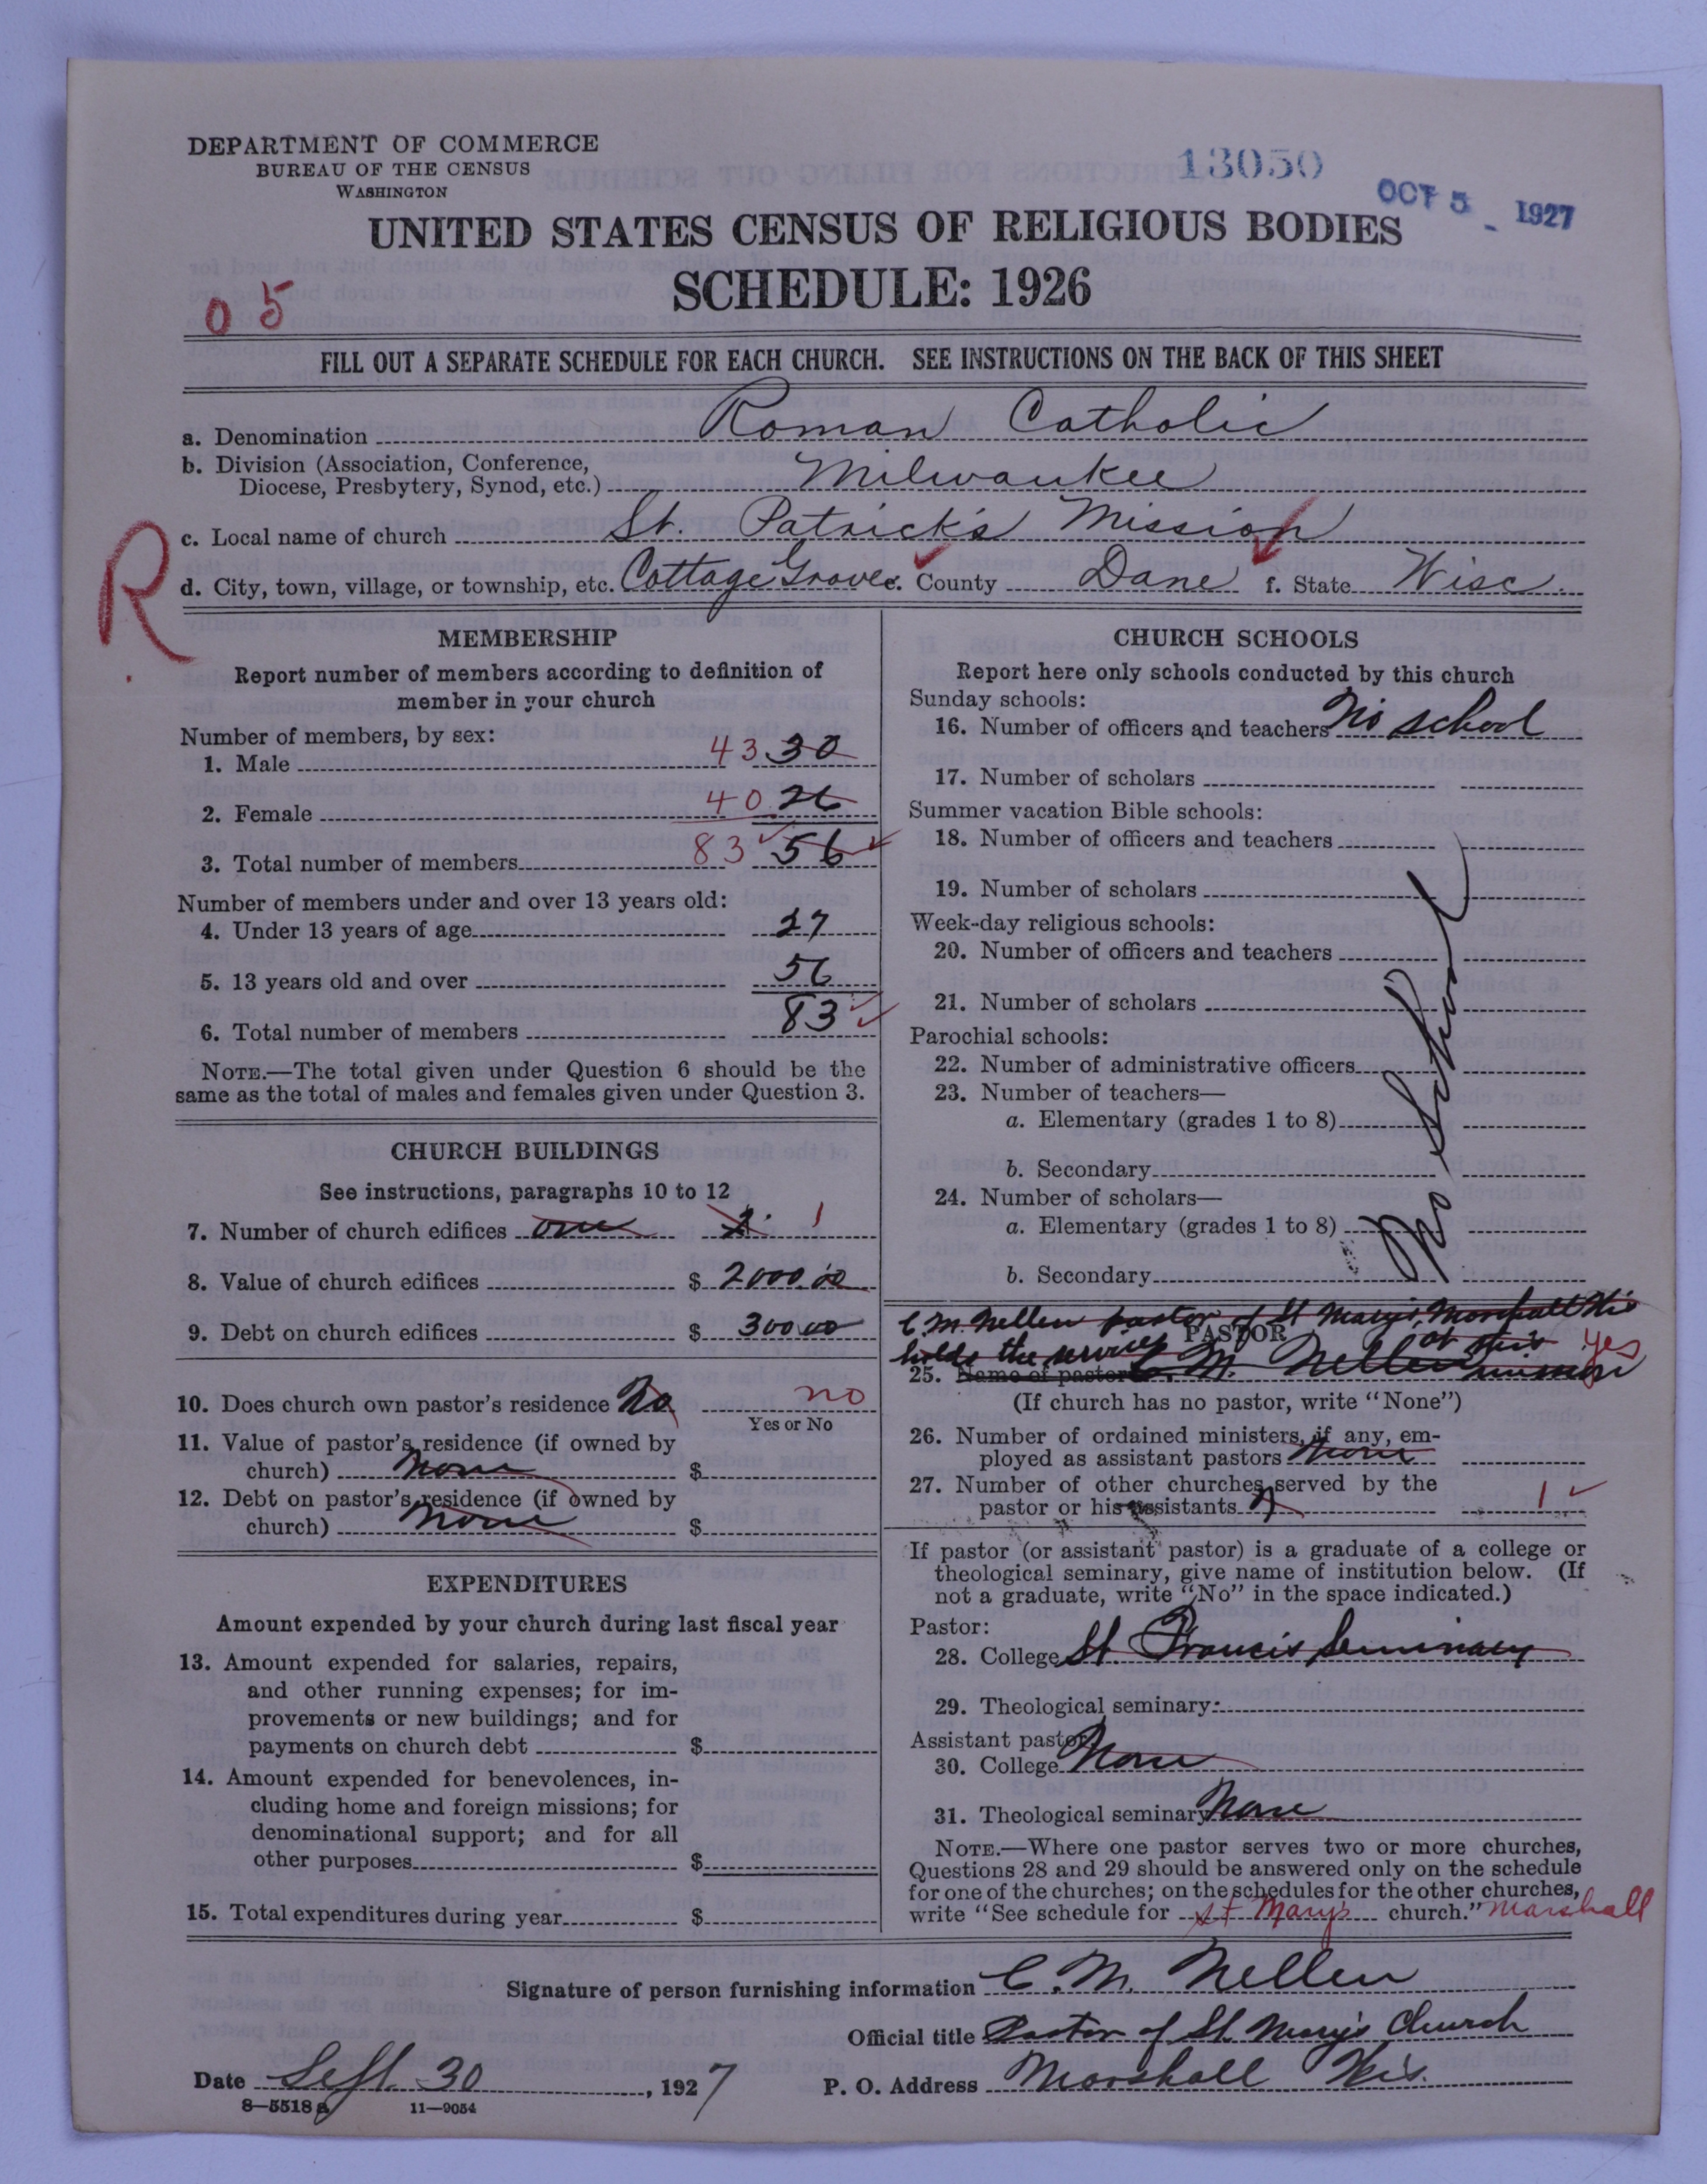 DEPARTMENT OF COMMERCE
BUREAU OF THE CENSUS
WASHINGTON
13050
OCT 5 1927
UNITED STATES CENSUS OF RELIGIOUS BODIES
SCHEDULE: 1926
05
FILL OUT A SEPARATE SCHEDULE FOR EACH CHURCH. SEE INSTRUCTIONS ON THE BACK OF THIS SHEET
a. Denomination Roman Catholic
b. Division (Association, Conference,
Diocese, Presbytery, Synod, etc.) Milwaukee
R
c. Local name of church St. Patrick's Mission
d. City, town, village, or township, etc. Cottage Grove e. County Dane f. State Wisc.
MEMBERSHIP
Report number of members according to definition of
member in your church
Number of members, by sex:
1. Male 43 30
2. Female 40 26
3. Total number of members 83 56
Number of members under and over 13 years old:
4. Under 13 years of age 27
5. 13 years old and over 56
6. Total number of members 83
NOTE.—The total given under Question 6 should be the
same as the total of males and females given under Question 3.
CHURCH BUILDINGS
See instructions, paragraphs 10 to 12
7. Number of church edifices one 1
8. Value of church edifices $ 2000.00
9. Debt on church edifices $ 300.00
10. Does church own pastor's residence No no
Yes or No
11. Value of pastor's residence (if owned by
church) None $
12. Debt on pastor's residence (if owned by
church) None $
EXPENDITURES
Amount expended by your church during last fiscal year
13. Amount expended for salaries, repairs,
and other running expenses; for im-
provements or new buildings; and for
payments on church debt $
14. Amount expended for benevolences, in-
cluding home and foreign missions; for
denominational support; and for all
other purposes $
15. Total expenditures during year $
CHURCH SCHOOLS
Report here only schools conducted by this church
Sunday schools:
16. Number of officers and teachers No school
17. Number of scholars
Summer vacation Bible schools:
18. Number of officers and teachers
19. Number of scholars
Week-day religious schools:
20. Number of officers and teachers
21. Number of scholars
Parochial schools:
22. Number of administrative officers
23. Number of teachers—
a. Elementary (grades 1 to 8)
b. Secondary
24. Number of scholars—
a. Elementary (grades 1 to 8)
b. Secondary
No school
C. M. Nellen pastor of St Mary's, Marshall Wis
PASTOR
holds the services at this mission
25. Name of pastor C. M. Nellen yes
(If church has no pastor, write "None")
26. Number of ordained ministers, if any, em-
ployed as assistant pastors None
27. Number of other churches served by the
pastor or his assistants 1
If pastor (or assistant pastor) is a graduate of a college or
theological seminary, give name of institution below. (If
not a graduate, write "No" in the space indicated.)
Pastor:
28. College St. Francis Seminary
29. Theological seminary:
Assistant pastor:
30. College None
31. Theological seminary None
NOTE.—Where one pastor serves two or more churches,
Questions 28 and 29 should be answered only on the schedule
for one of the churches; on the schedules for the other churches,
write "See schedule for St Mary's church." Marshall
Signature of person furnishing information C. M. Nellen
Official title Pastor of St. Mary's Church
Date Sept. 30, 1927 P. O. Address Marshall Wis.
8—5518a 11—9054